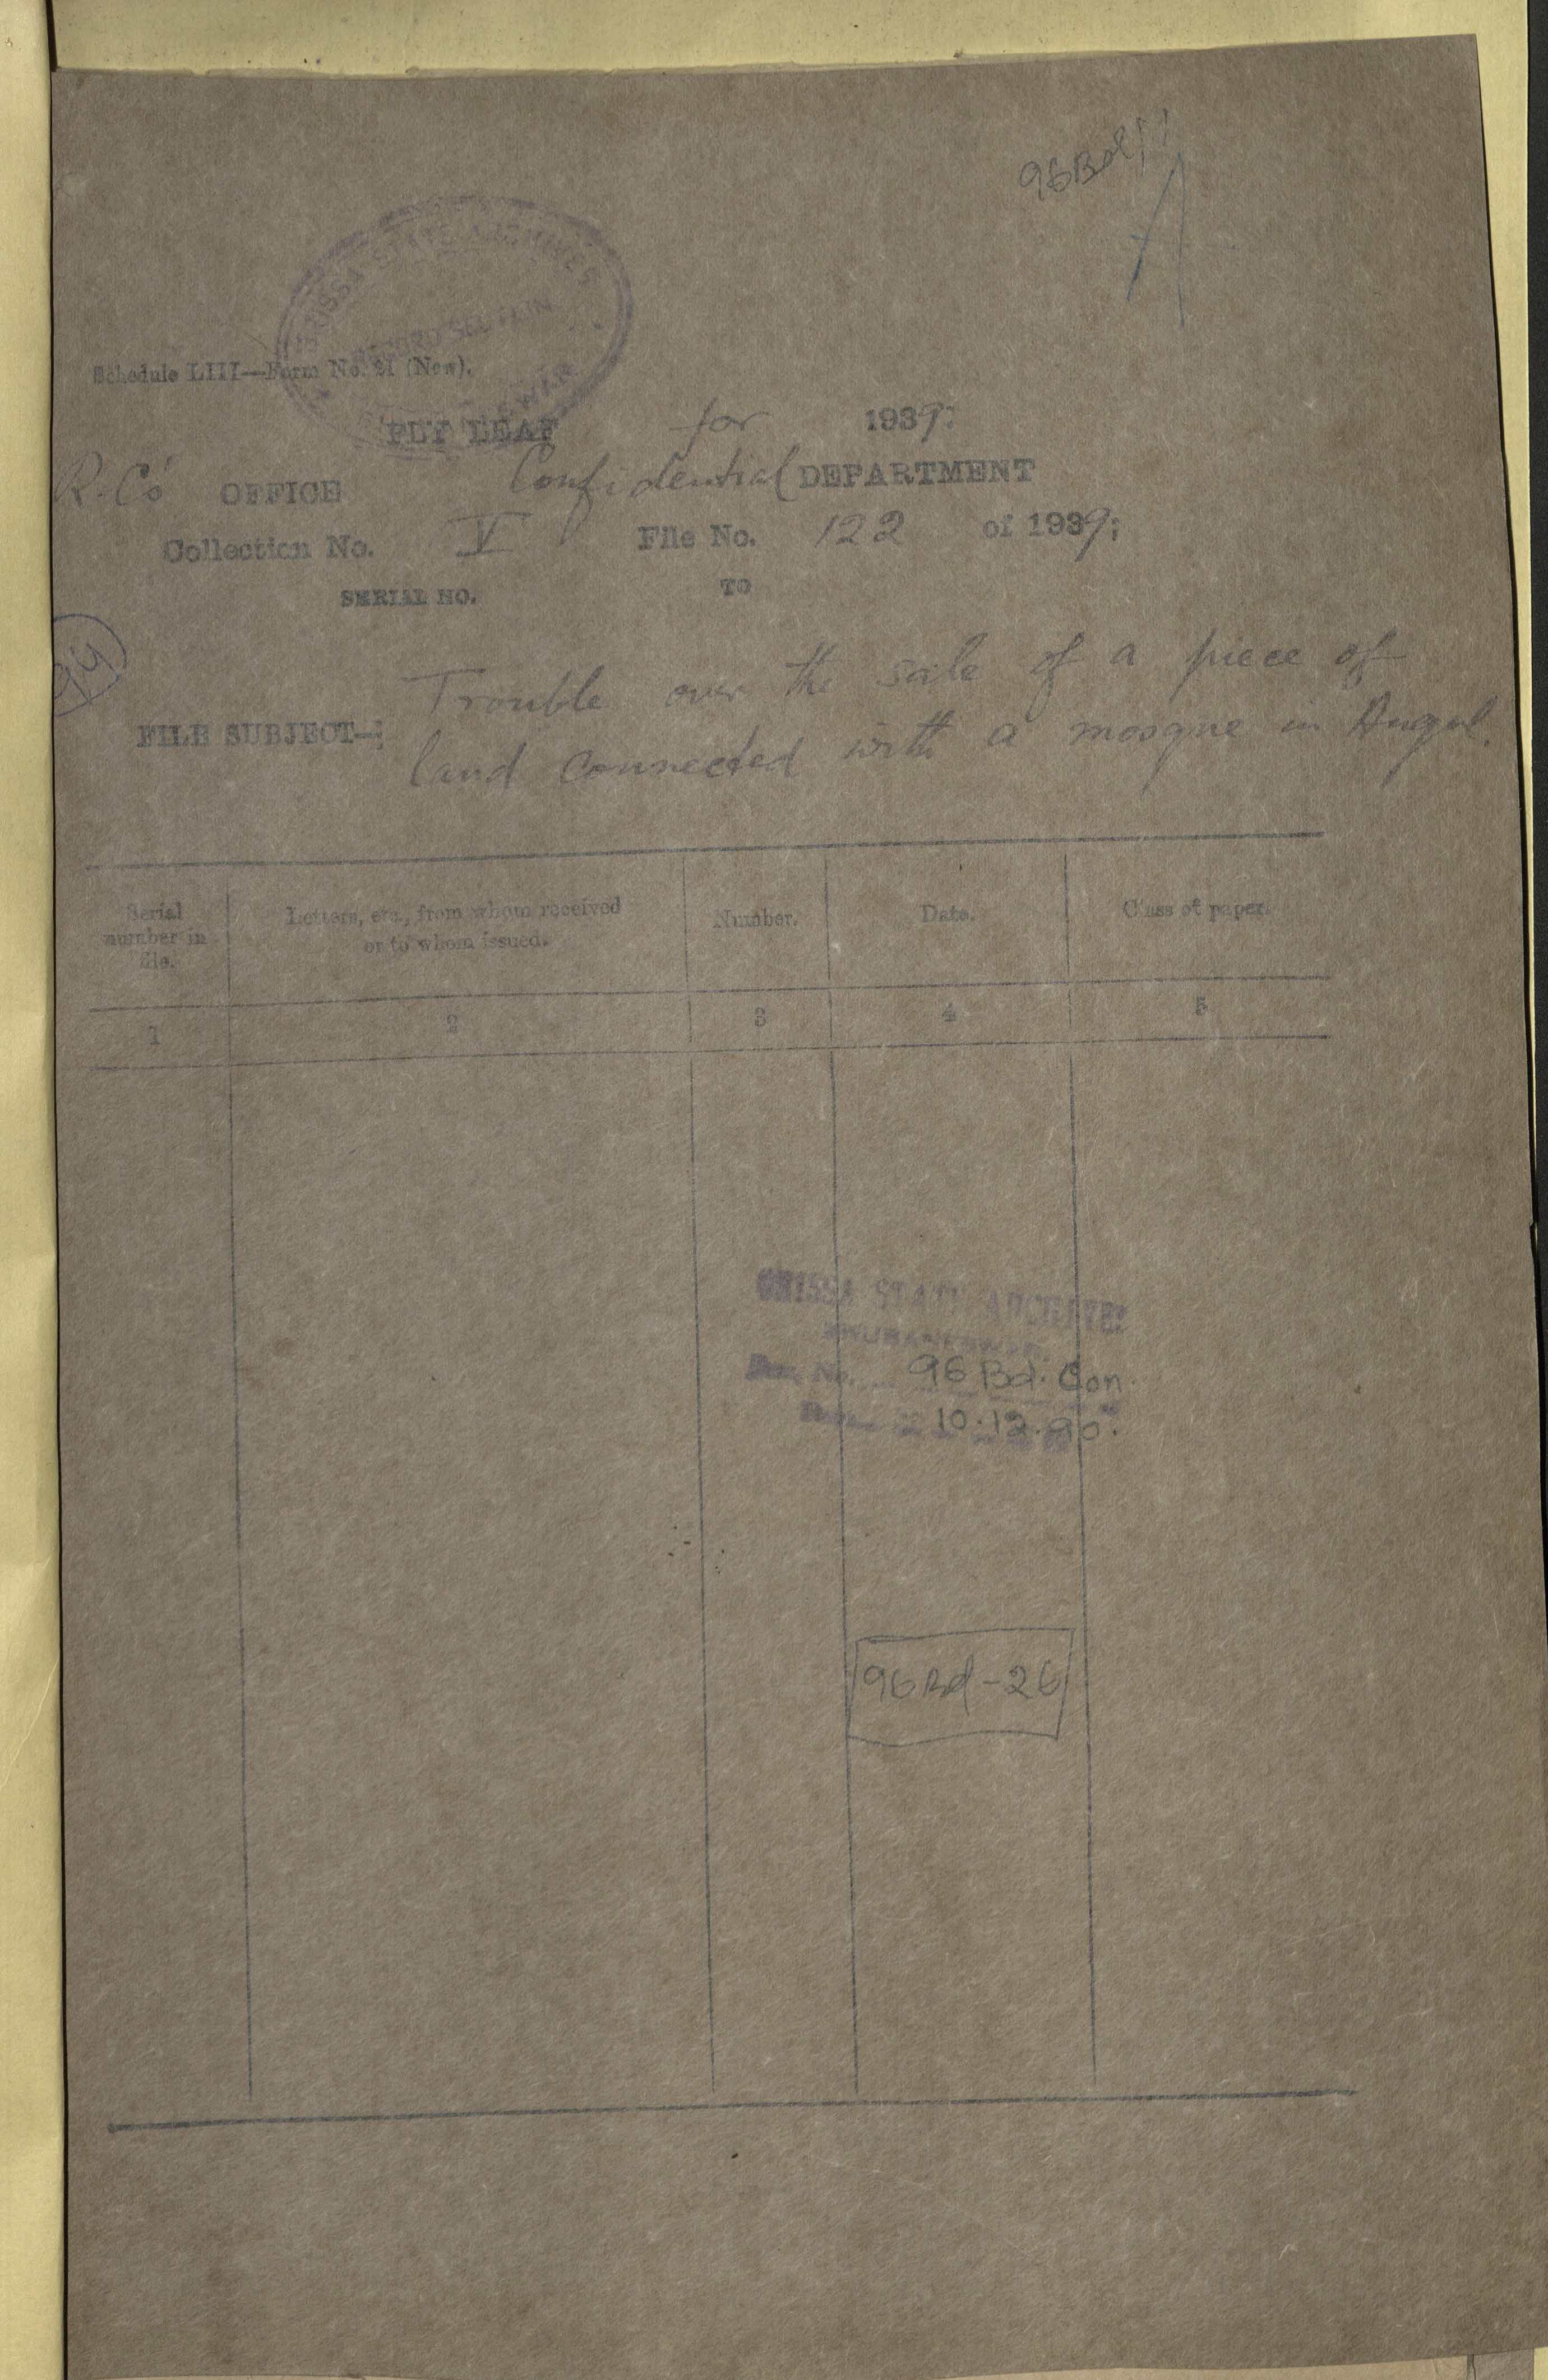 96Bd
A
ORISSA STATE ARCHIVES
RECORD SECTION
Schedule LIII—Form No. 21 (New).
FLY LEAF for 1939;
R.C's OFFICE Confidential DEPARTMENT
Collection No. V File No. 122 of 1939;
SERIAL NO. TO
FILE SUBJECT—; Trouble over the sale of a piece of
land connected with a mosque in Angul.
Serial number in file.
Letters, etc., from whom received or to whom issued.
Number.
Date.
Class of paper.
1 2 3 4 5
ORISSA STATE ARCHIVES
BHUBANESWAR.
No. 96 Bd. Con.
10.12.90.
96 Bd-26